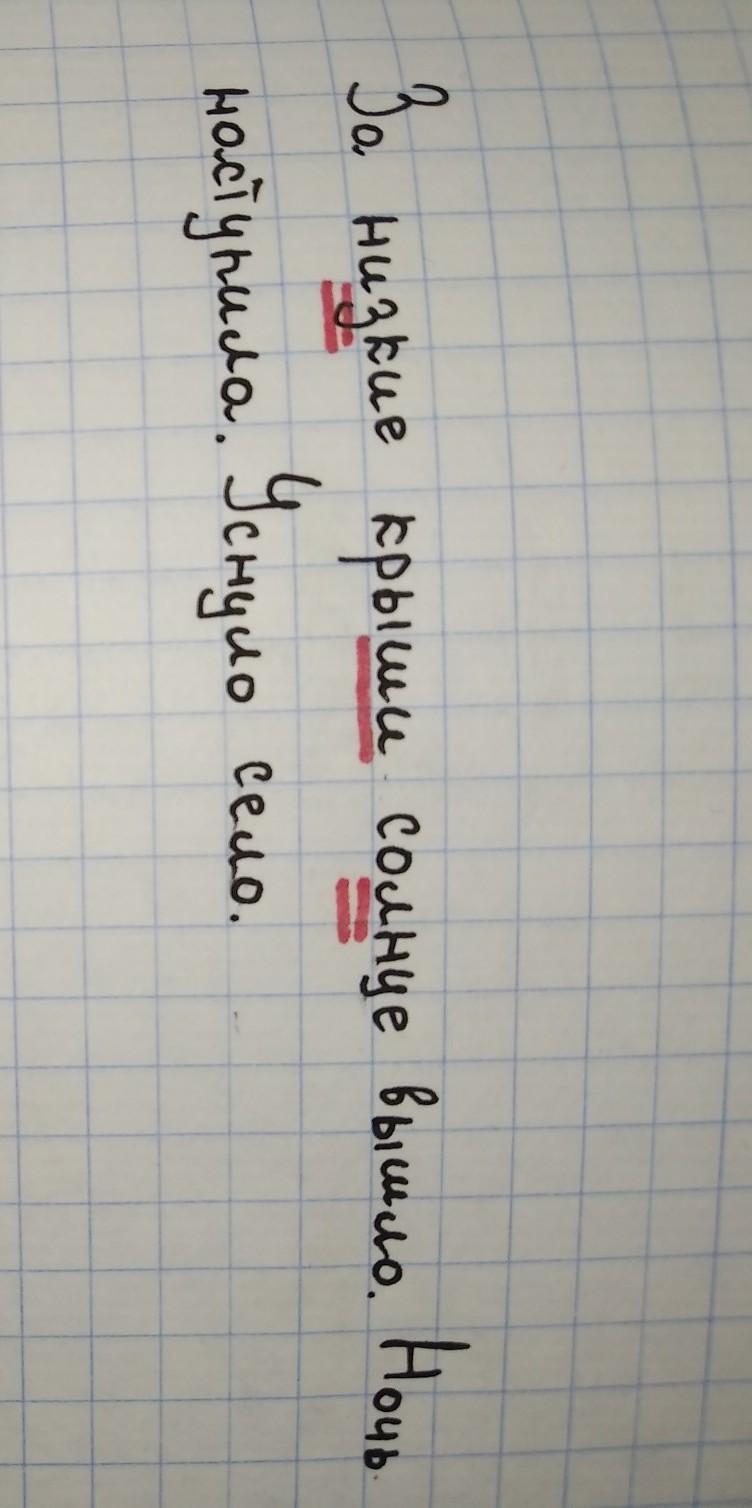 За низкие крыши солнце вышло. Ночь
наступила. Уснуло село.